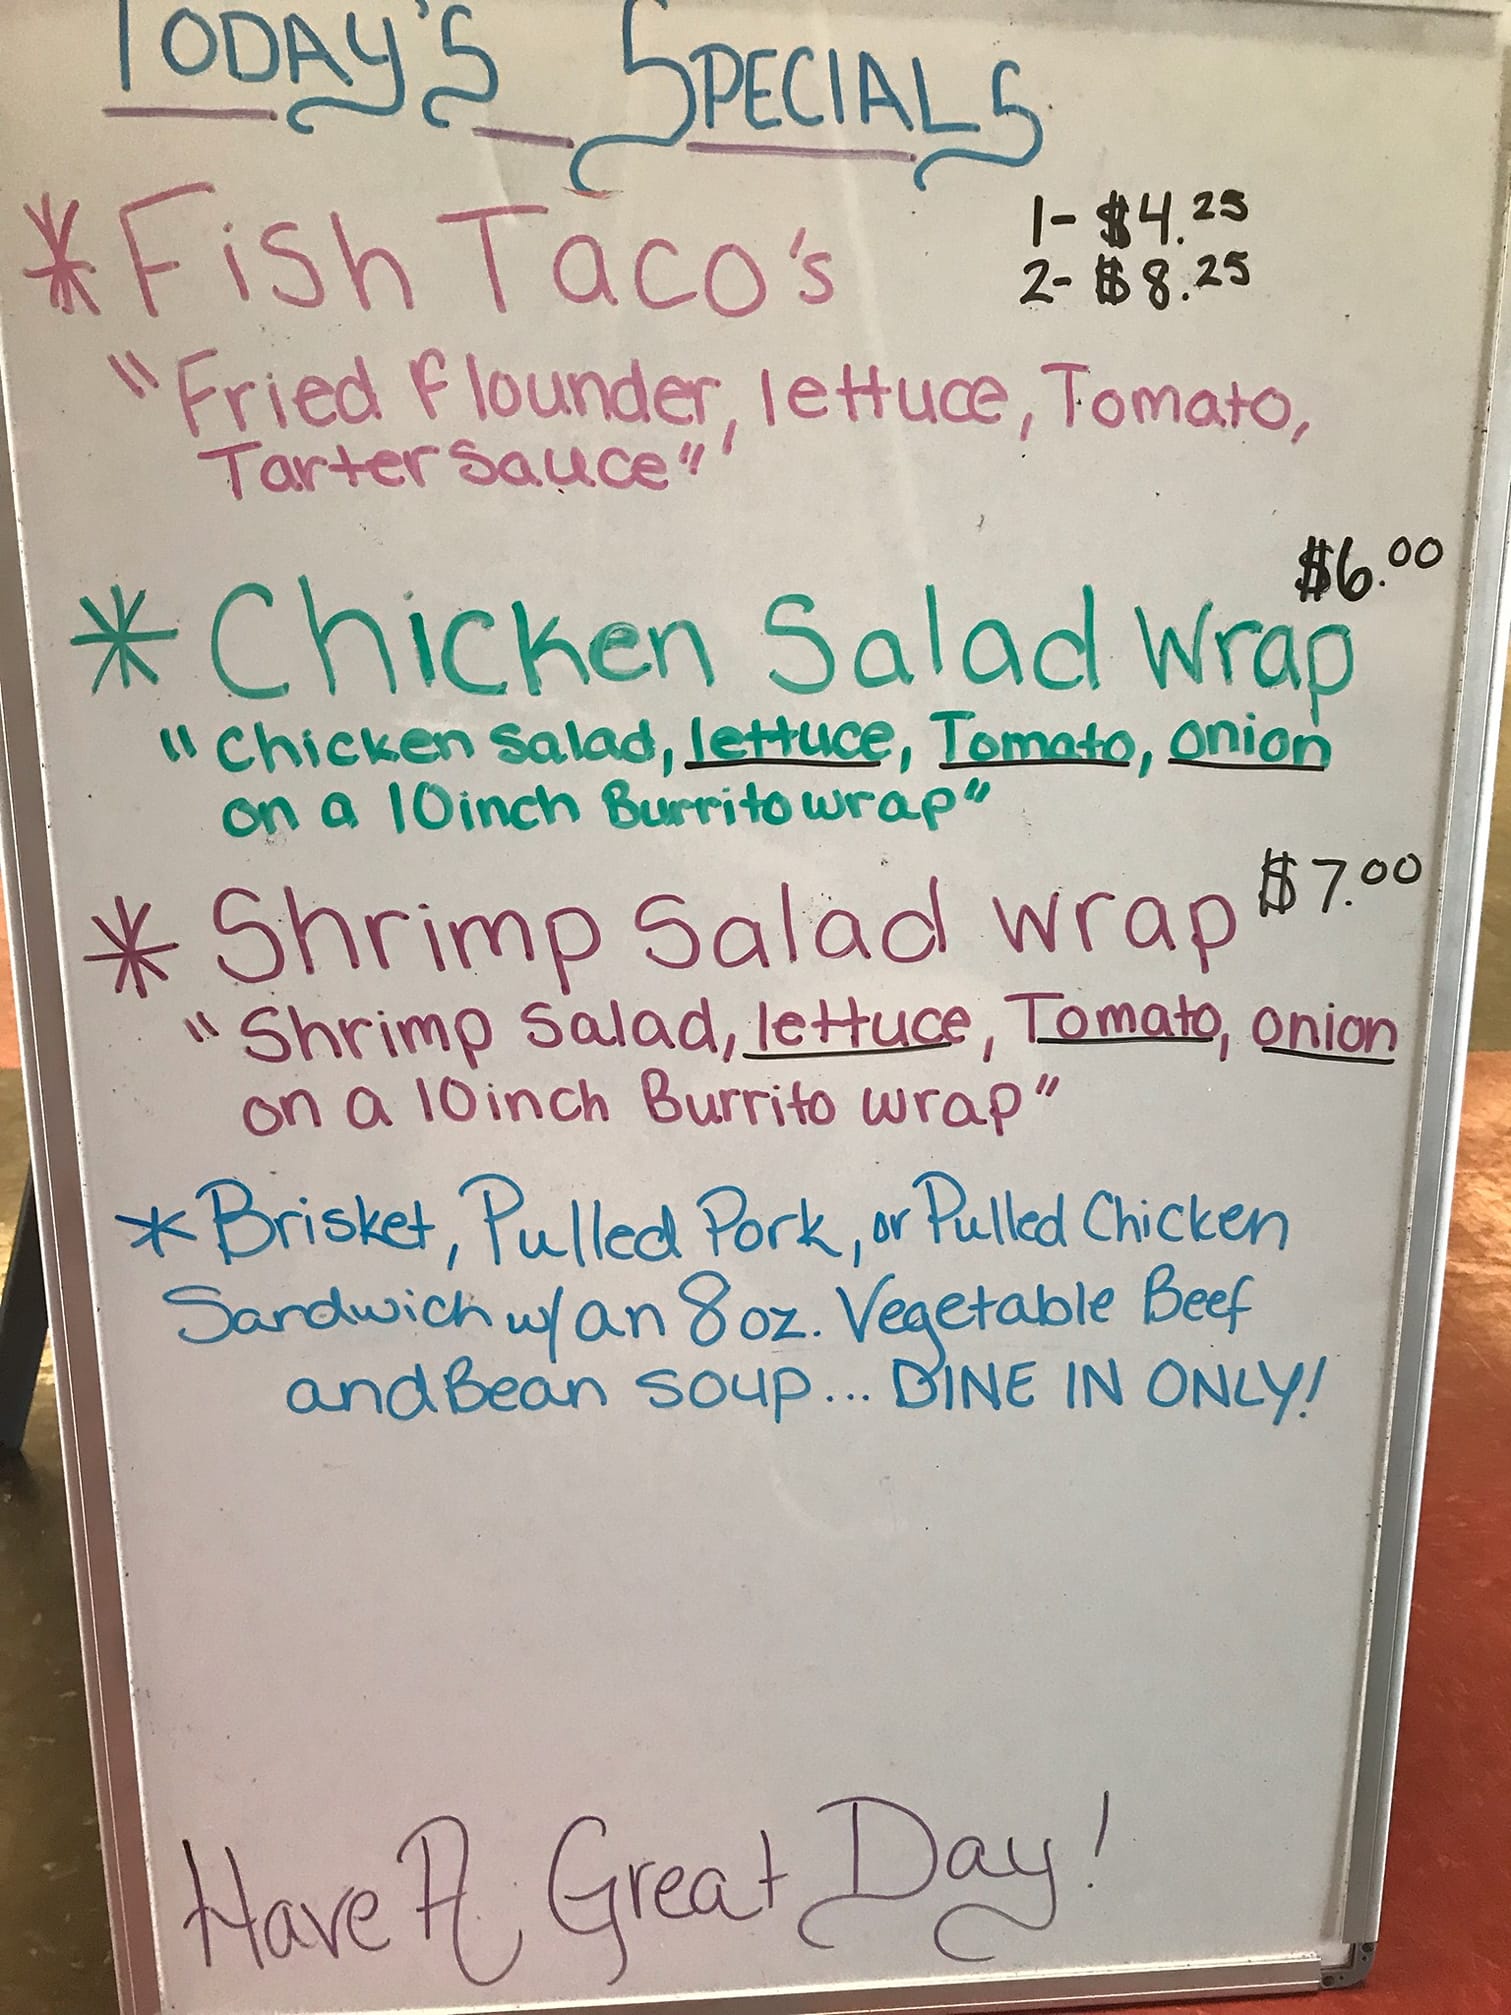 TODAY'S SPECIALS
* Fish Taco's 1- $4.25
2- $8.25
"Fried Flounder, lettuce, Tomato,
Tarter Sauce"
$6.00
* Chicken Salad Wrap
"Chicken Salad, lettuce, Tomato, onion
on a 10 inch Burrito wrap"
* Shrimp Salad wrap $7.00
"Shrimp Salad, lettuce, Tomato, onion
on a 10 inch Burrito wrap"
* Brisket, Pulled Pork, or Pulled Chicken
Sandwich w/ an 8 oz. Vegetable Beef
and Bean Soup... DINE IN ONLY!
Have A Great Day!